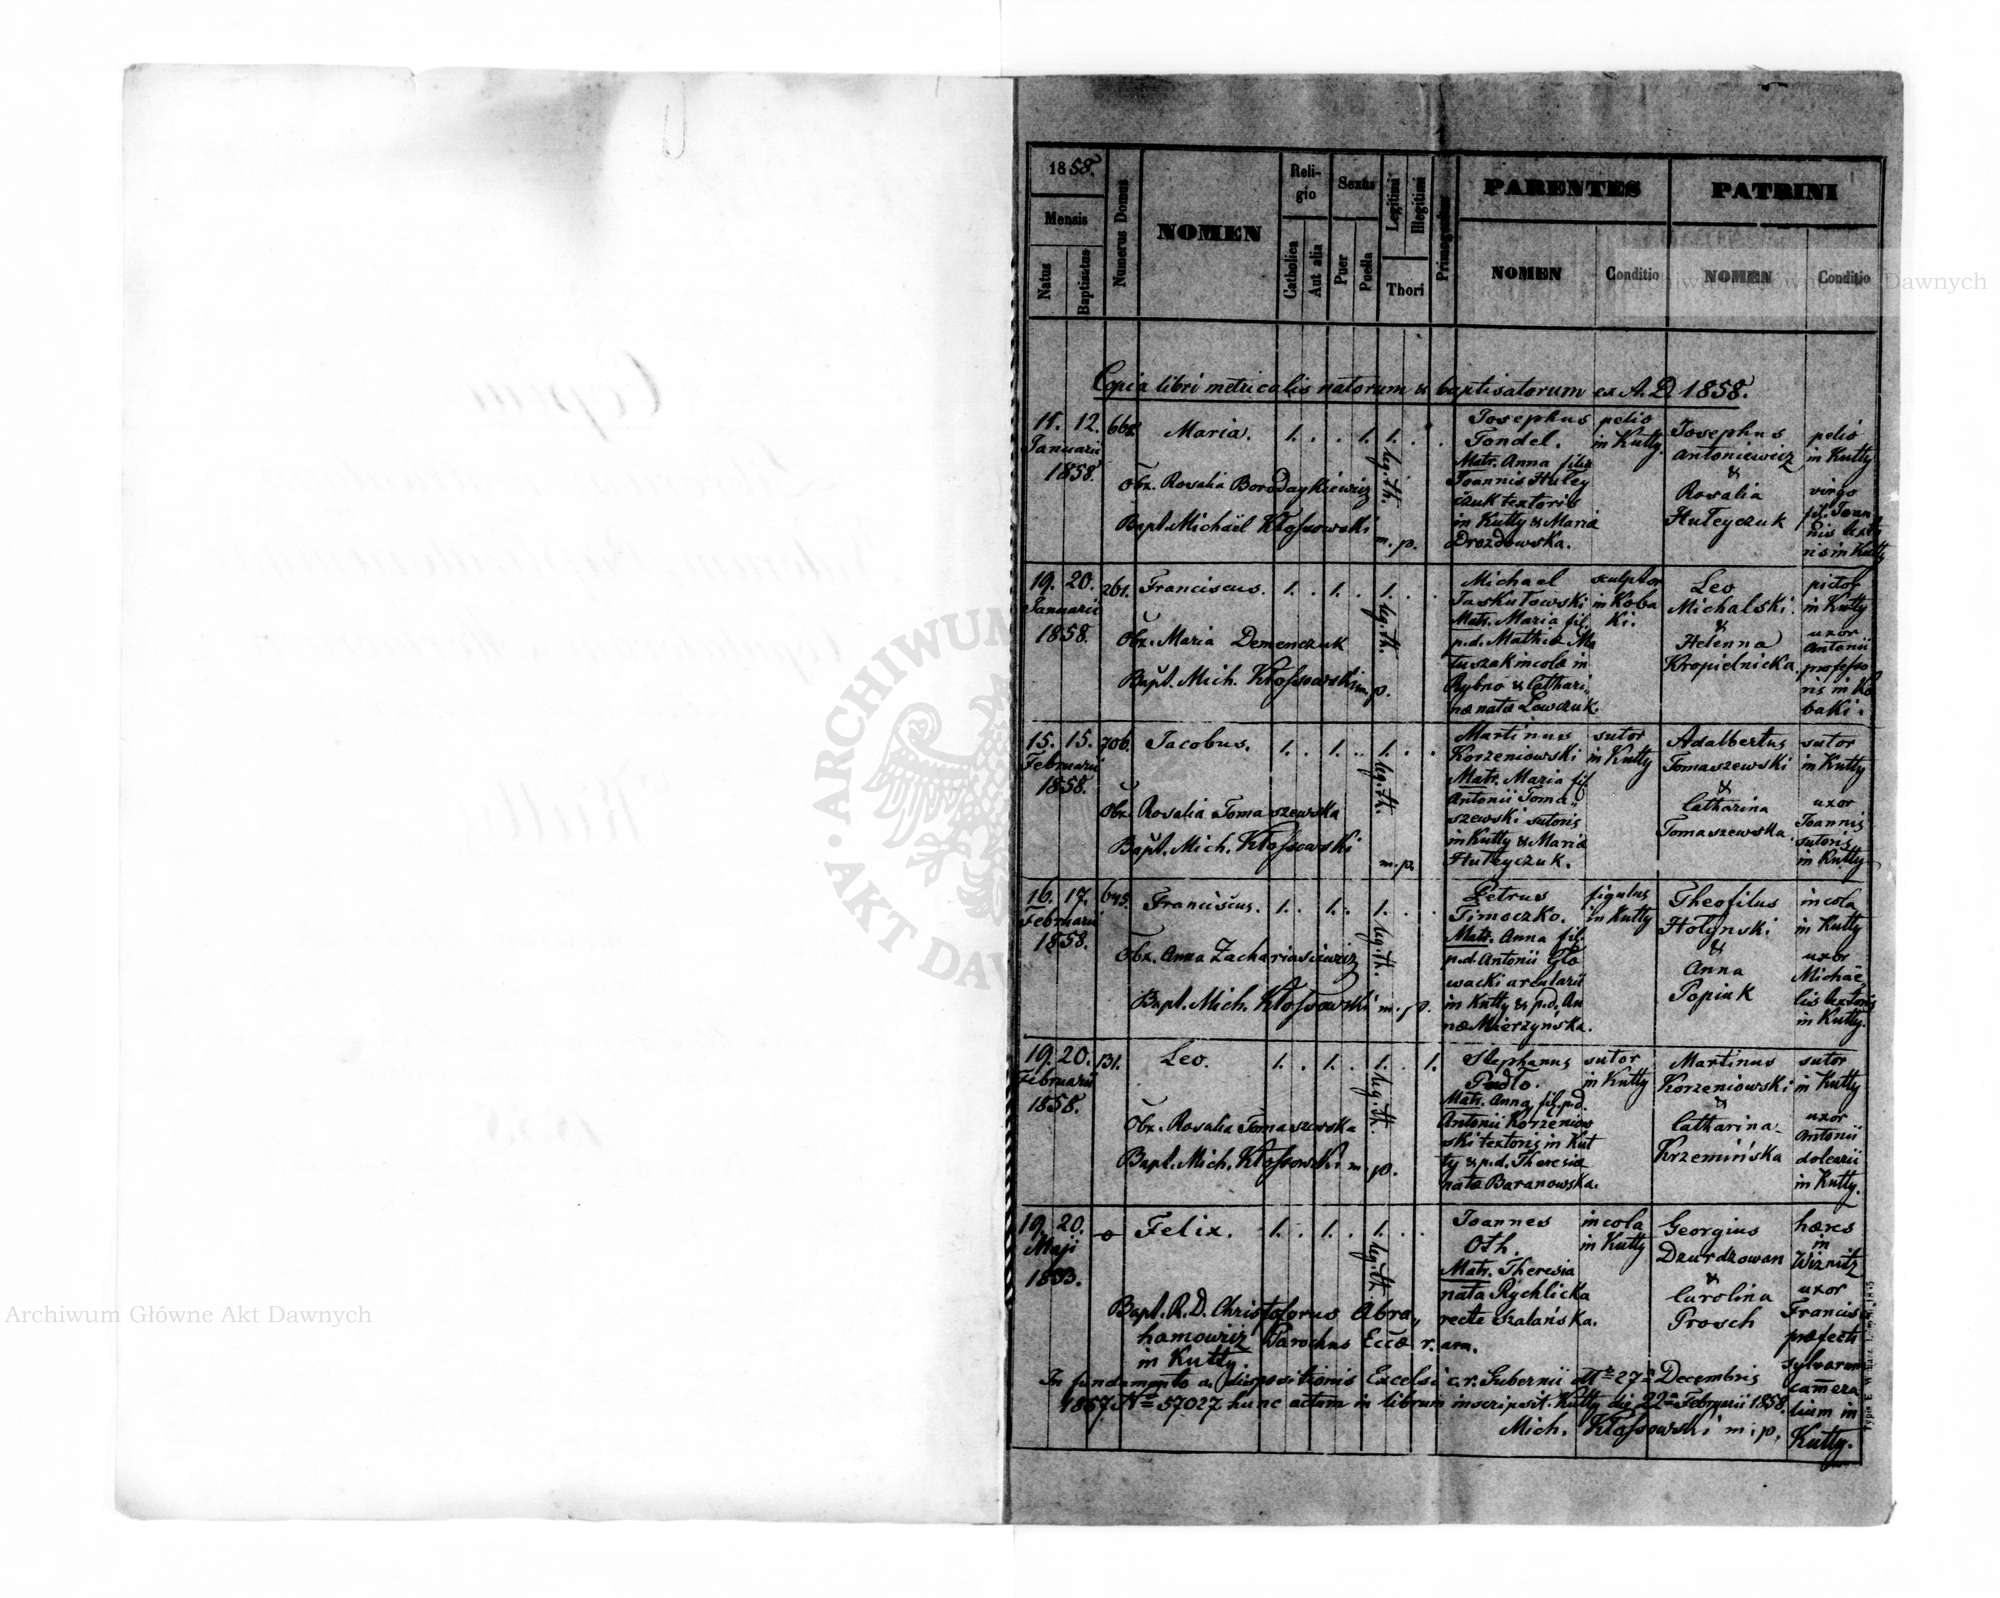 1858.
Mensis
Natus
Baptisatus
Numerus Domus
NOMEN
Reli-
gio
Catholica
Aut alia
Sexus
Puer
Puella
Legitimi
Illegitimi
Thori
PARENTES
NOMEN
Conditio
PATRINI
NOMEN
Conditio
Copia libri metricalis natorum & baptisatorum ex A.D. 1858.
11. 12.
Januarii
1858.
662.
Maria.
1. . . 1. 1. . .
leg. th.
Obx. Rosalia Borodaykiewicz
Bapt. Michaël Kłossowski m. p.
Josephus
Tondel.
Matr. Anna filia
Joannis Huley
czuk textoris
in Kutty & Maria
Drozdowska.
pelio
in Kutty
Josephus
Antoniewicz
&
Rosalia
Huleyczuk
pelio
in Kutty
virgo
fil. Joan
nis texto
ris in Kutty
19. 20.
Januarii
1858.
261.
Franciscus.
1. . 1. . 1. . .
leg. th.
Obx. Maria Demenczuk
Bapt. Mich. Kłossowski m. p.
Michael
Jaskułowski
Matr. Maria fil.
p.d. Mathiæ Ma
tuszak incolæ in
Rybno & Cathari,
næ natæ Lowczuk.
sculptor
in Koba
ki.
Leo
Michalski.
&
Helenna
Kropielnicka
pictor
in Kutty
uxor
Antonii
professo
ris in Ko
baki.
15. 15.
Februarii
1858.
706.
Jacobus.
1. . 1. . 1. . .
leg. th.
Obx. Rosalia Tomaszewska
Bapt. Mich. Kłossowski m. p.
Martinus
Korzeniowski
Matr. Maria fil.
Antonii Toma,
szewski sutoris
in Kutty & Maria
Huleyczuk.
sutor
in Kutty
Adalbertus
Tomaszewski
&
Catharina
Tomaszewska.
sutor
in Kutty
uxor
Joannis
sutoris
in Kutty
16. 17.
Februarii
1858.
645.
Franciscus.
1. . 1. . 1. . .
leg. th.
Obx. Anna Zachariasiewicz
Bapt. Mich. Kłossowski m. p.
Petrus
Timoczko.
Matr. Anna fil.
p.d. Antonii Gło
wacki arcularii
in Kutty & p.d. An
næ Mierzyńska.
figulus
in Kutty
Theofilus
Hołynski
&
Anna
Popiuk
incola
in Kutty
uxor
Michaë,
lis textoris
in Kutty.
19. 20.
Februarii
1858.
131.
Leo.
1. . 1. . 1. . 1.
leg. th.
Obx. Rosalia Tomaszewska
Bapt. Mich. Kłossowski m. p.
Stephanus
Pudło.
Matr. Anna fil. p.d.
Antonii Korzeniow
ski textoris in Kut
ty & p.d. Theresia
nata Baranowska.
sutor
in Kutty
Martinus
Korzeniowski
&
Catharina
Krzemińska
sutor
in Kutty
uxor
Antonii
dolearii
in Kutty.
19. 20.
Maji
1833.
o
Felix.
1. . 1. . 1. . .
leg. th.
Bapt. R. D. Christoforus Abra,,
hamowicz Parochus Eccæ r. arm.
in Kutty.
Joannes
Oth.
Matr. Theresia
nata Rychlicka
recte Szalańska.
incola
in Kutty
Georgius
Dzurdzowan
&
Carolina
Prosch
hæres
in
Wiznitz
uxor
Francis
præfecti
sylvarum
camera
lium in
Kutty.
In fundamento a. dispositionis Excelsi c. r. Gubernii dtto 27a Decembris
1857. No 57027 hunc actum in librum inscripsit. Kutty die 22a Februarii 1858.
Mich. Kłossowski m. p.
ARCHIWUM
AKT DAW
Archiwum Główne Akt Dawnych